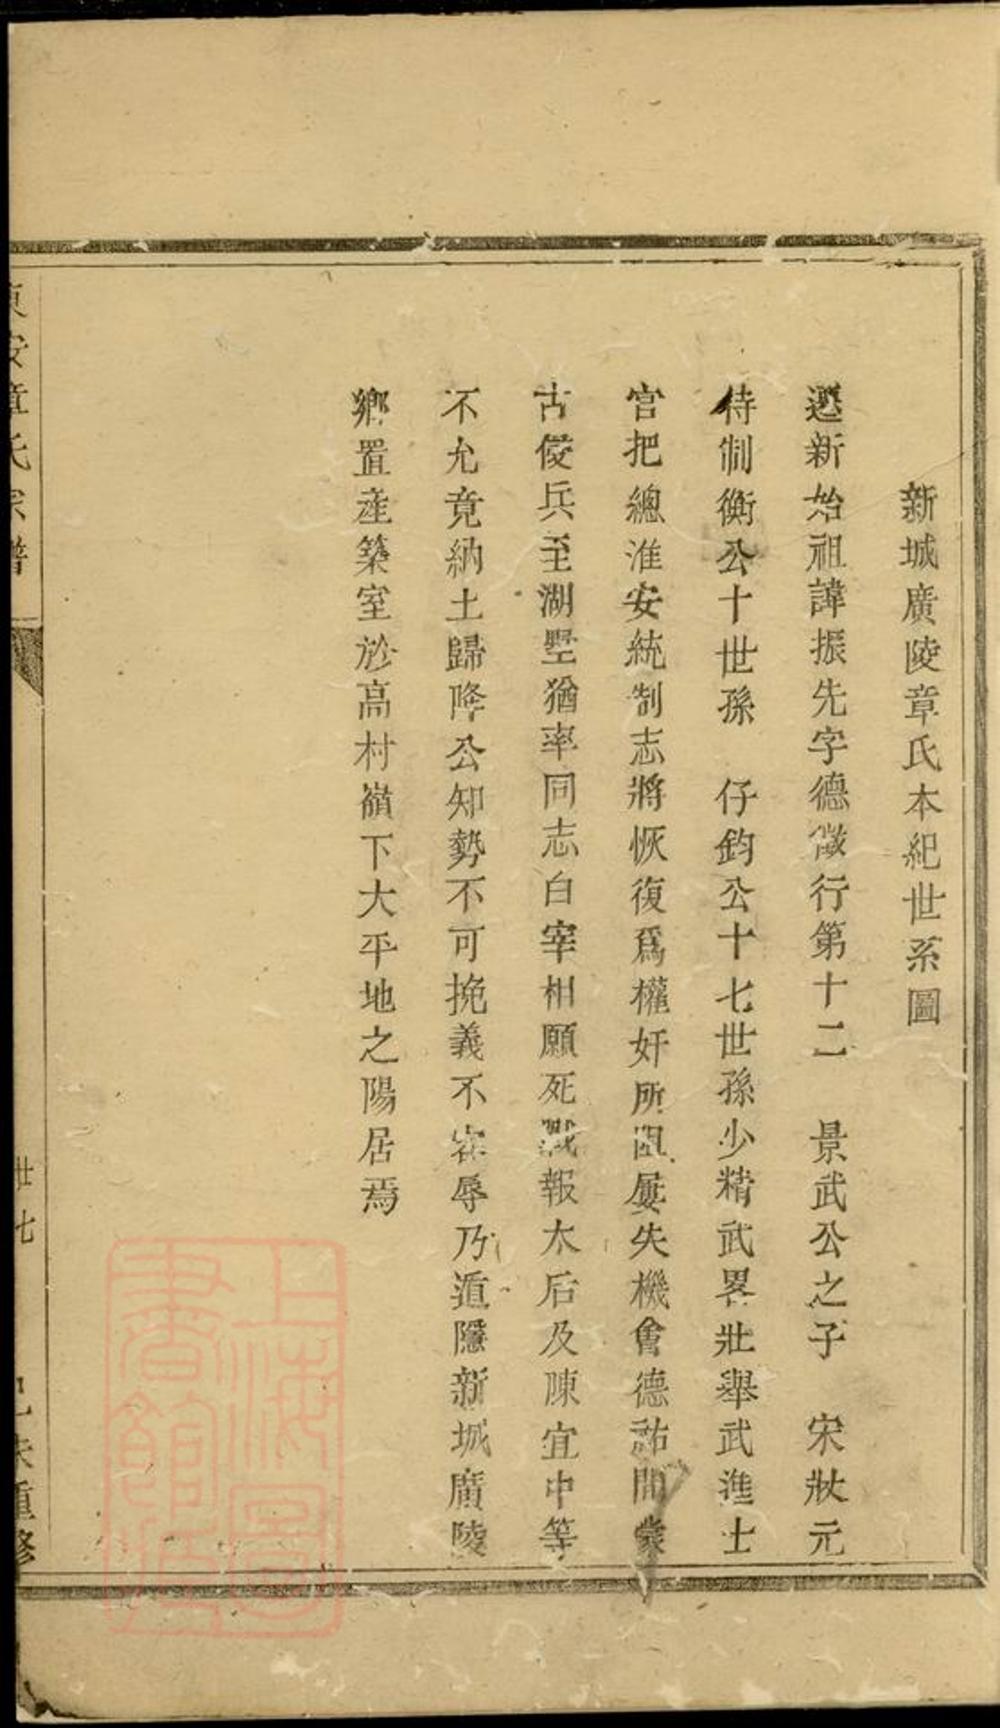 新城廣陵章氏本紀世系圖
遷新始祖諱振先字德徵行第十二 景武公之子 宋狀元
待制衡公十世孫 仔鈞公十七世孫少精武畧壯舉武進士
官把總淮安統制志將恢復爲權奸所阻屢失機會德祐間蒙
古侵兵至湖墅猶率同志白宰相願死戰報太后及陳宜中等
不允竟納土歸降公知勢不可挽義不容辱乃遁隱新城廣陵
鄉置產築室於高村嶺下大平地之陽居焉
東安章氏宗譜
廿七
重修
上海圖
書館藏